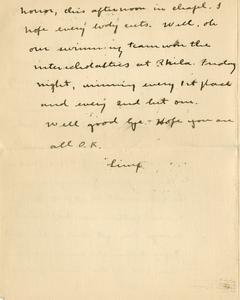 honor, this afternoon in chapel. I
hope every body cuts. Well, oh
our swimming team won the
interscholastics at Phila. Friday
night, winning every 1st place
and every 2nd but one.
Well good bye - Hope you are
all O.K.